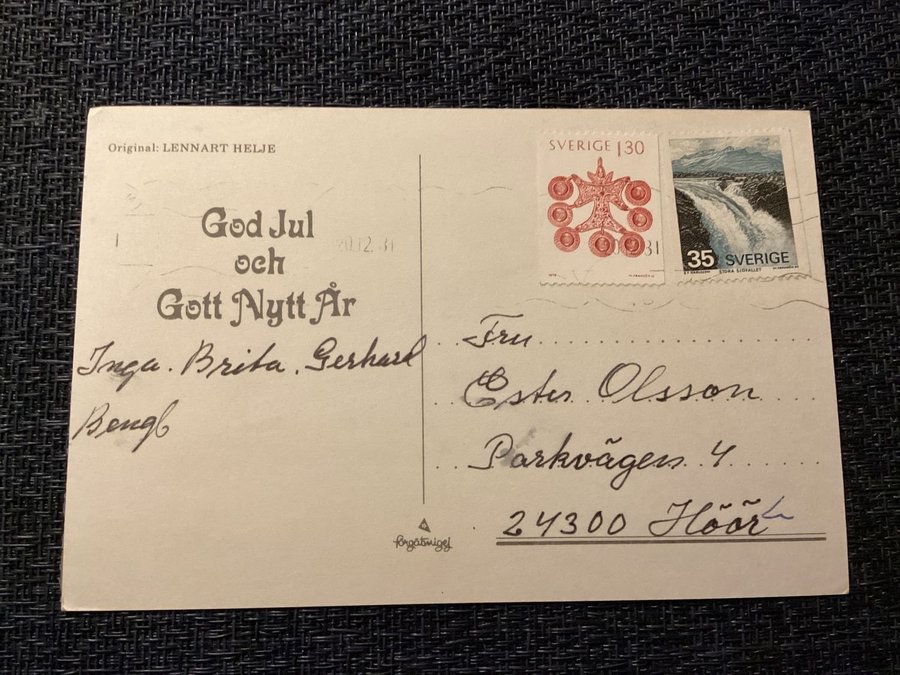 Original: LENNART HELJE
God Jul
och
Gott Nytt År
Inga. Brita. Gerhard
Bengt
SVERIGE 130
35 SVERIGE
STORA SJÖFALLET
20.12.81
Fru
Ester Olsson
Parkvägen 4
24300 Höör
förgätmigej